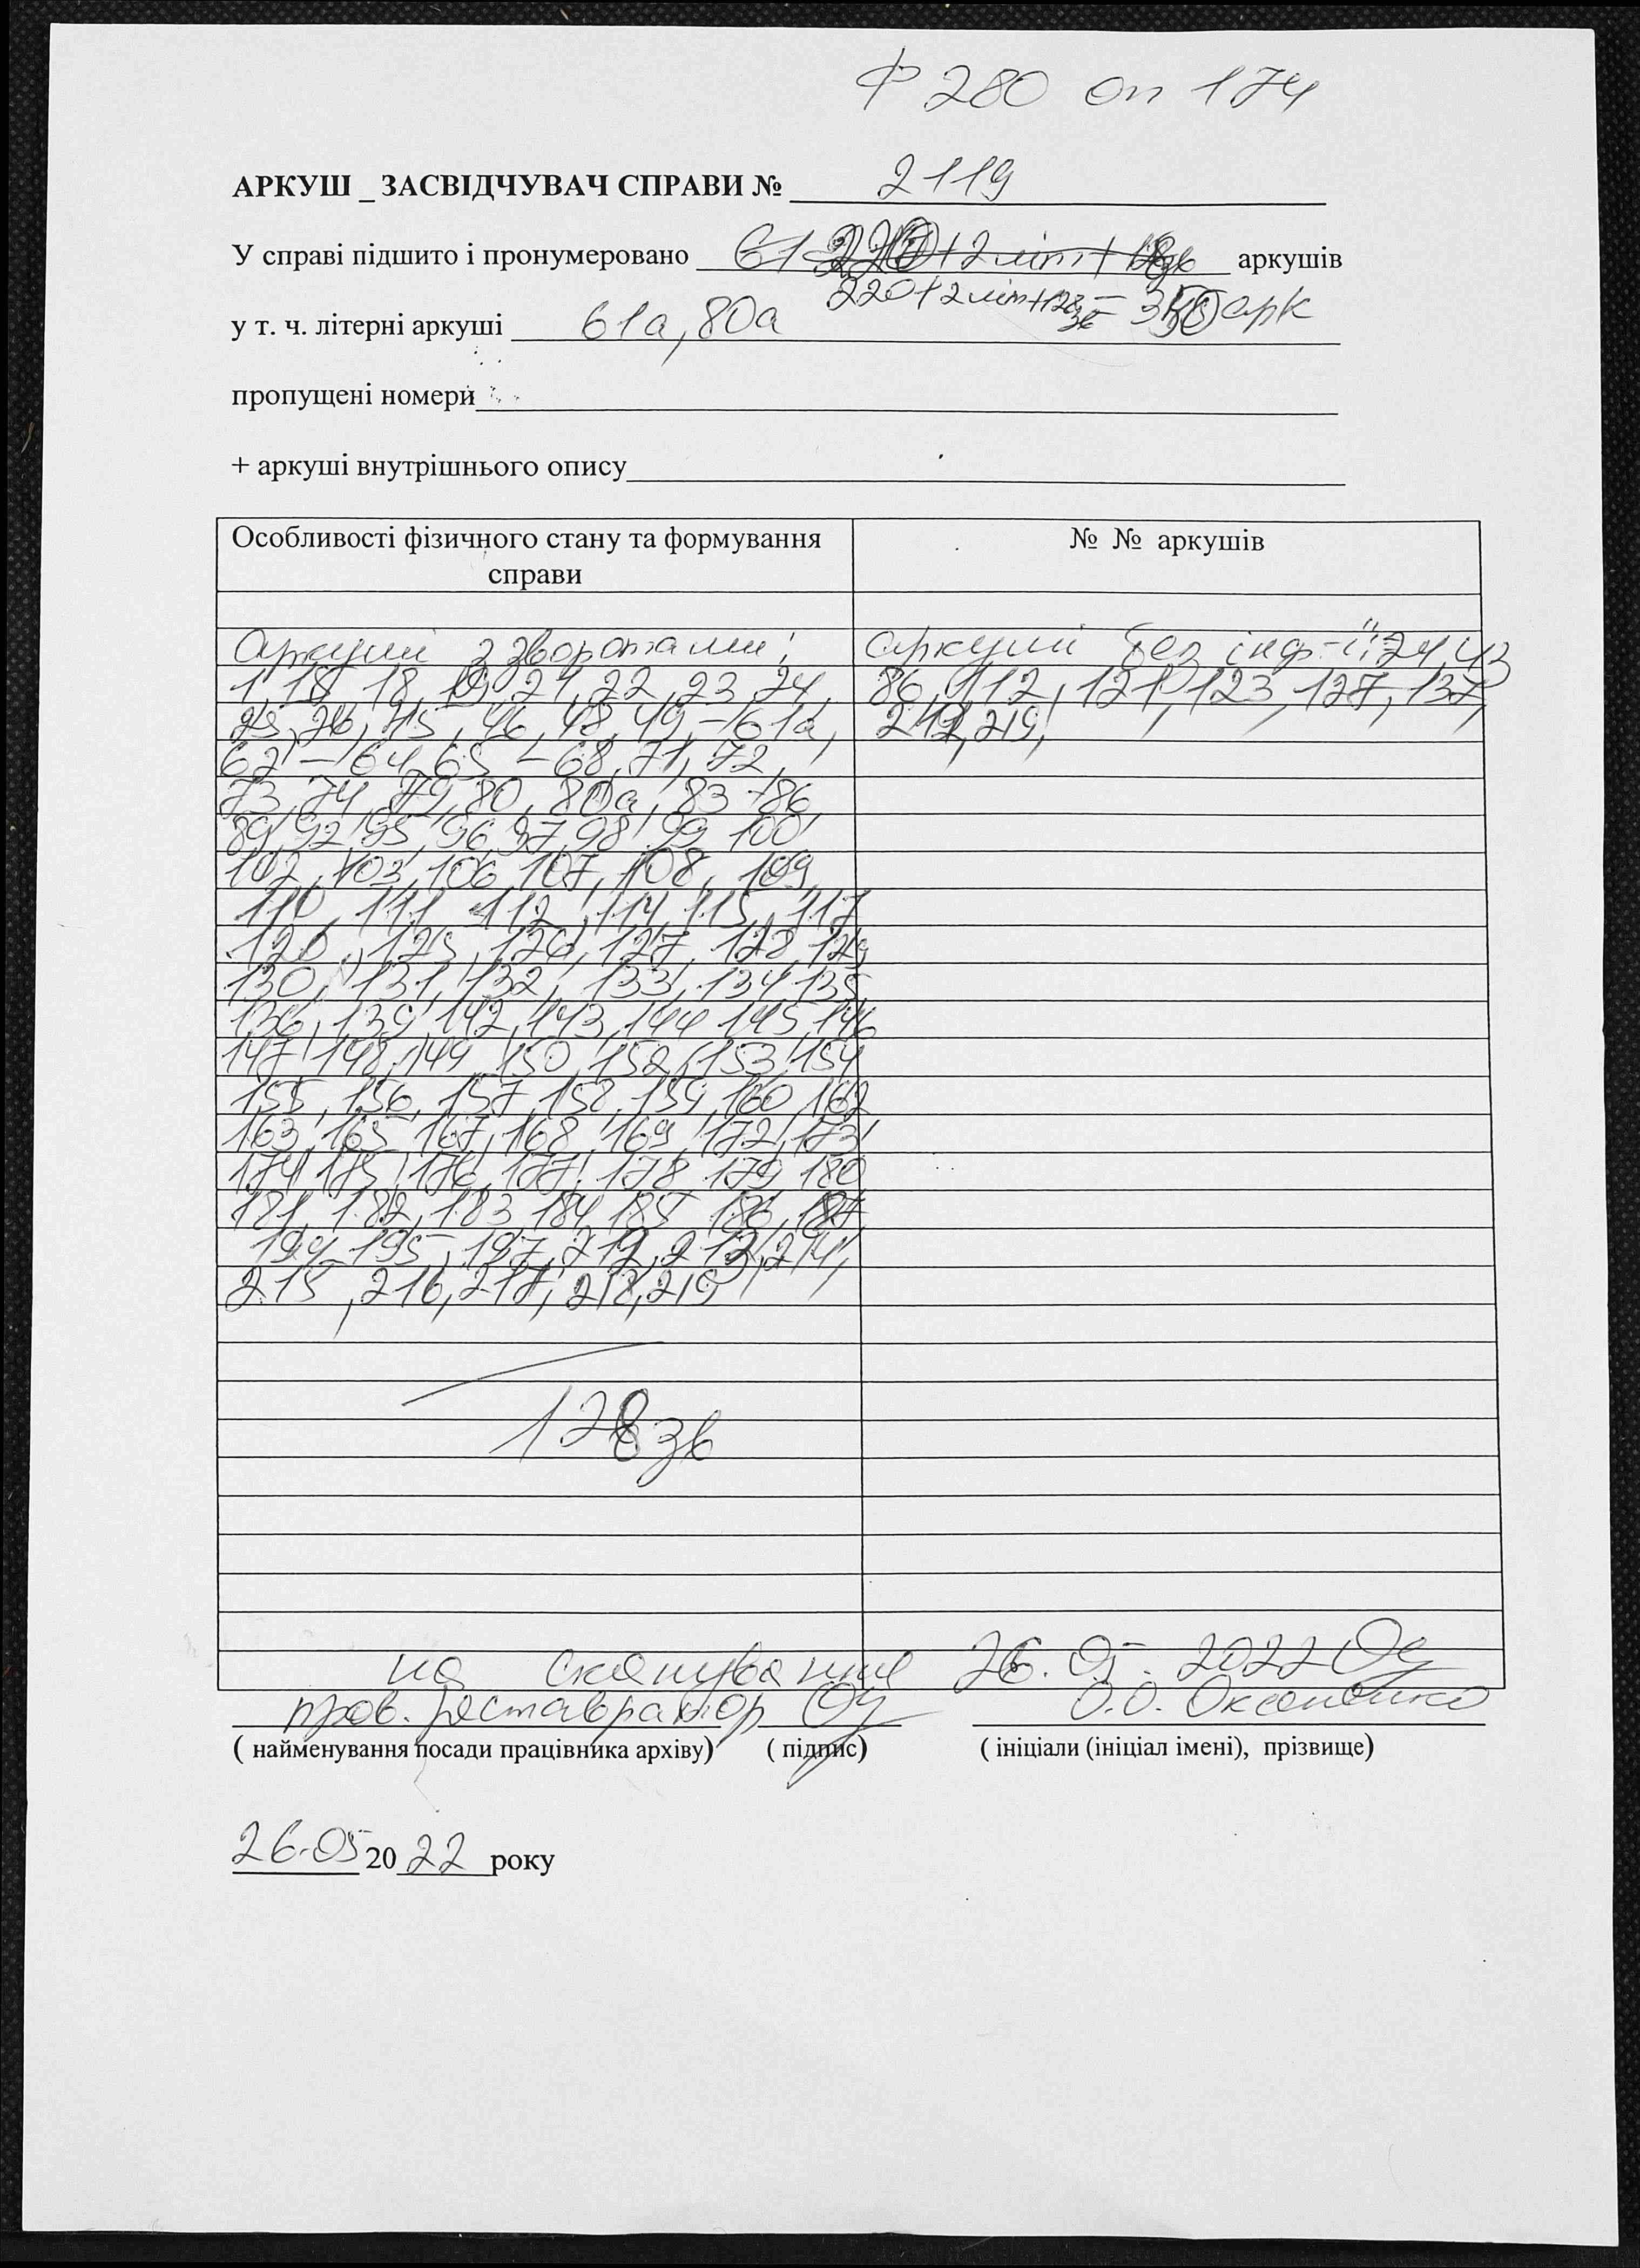 Ф 280 оп 174
АРКУШ _ ЗАСВІДЧУВАЧ СПРАВИ № 2119
У справі підшито і пронумеровано аркушів
220+2 літ+128 зв = 350 арк
у т. ч. літерні аркуші 61а, 80а
пропущені номери
+ аркуші внутрішнього опису
Особливості фізичного стану та формування справи
№ № аркушів
Аркуші з зворотами:
1, 15, 18, 19, 21, 22, 23, 24,
25, 26, 45, 46, 48, 49, - 61а,
62 - 64, 65 - 68, 71, 72,
73, 74, 79, 80, 80а, 83 - 86,
89, 92, 95, 96, 97, 98, 99, 100,
102, 103, 106, 107, 108, 109,
110, 111, 112, 114, 115, 117,
120, 125, 126, 127, 128, 129,
130, 131, 132, 133, 134, 135,
136, 139, 142, 143, 144, 145, 146
147, 148, 149, 150, 152, 153, 154
155, 156, 157, 158, 159, 160, 162
163, 165, 167, 168, 169, 172, 173,
174, 175, 176, 177, 178, 179, 180
181, 182, 183, 184, 185, 186, 187,
194, 195, 197, 212, 213, 214,
215, 216, 217, 218, 219
128 зв
Аркуші без інф-ії: 24, 43
86, 112, 121, 123, 127, 137,
212, 219,
на сканування 26.05.2022
пров. реставратор О.О. Оксаненко
( найменування посади працівника архіву) ( підпис) ( ініціали (ініціал імені), прізвище)
26.05 2022 року